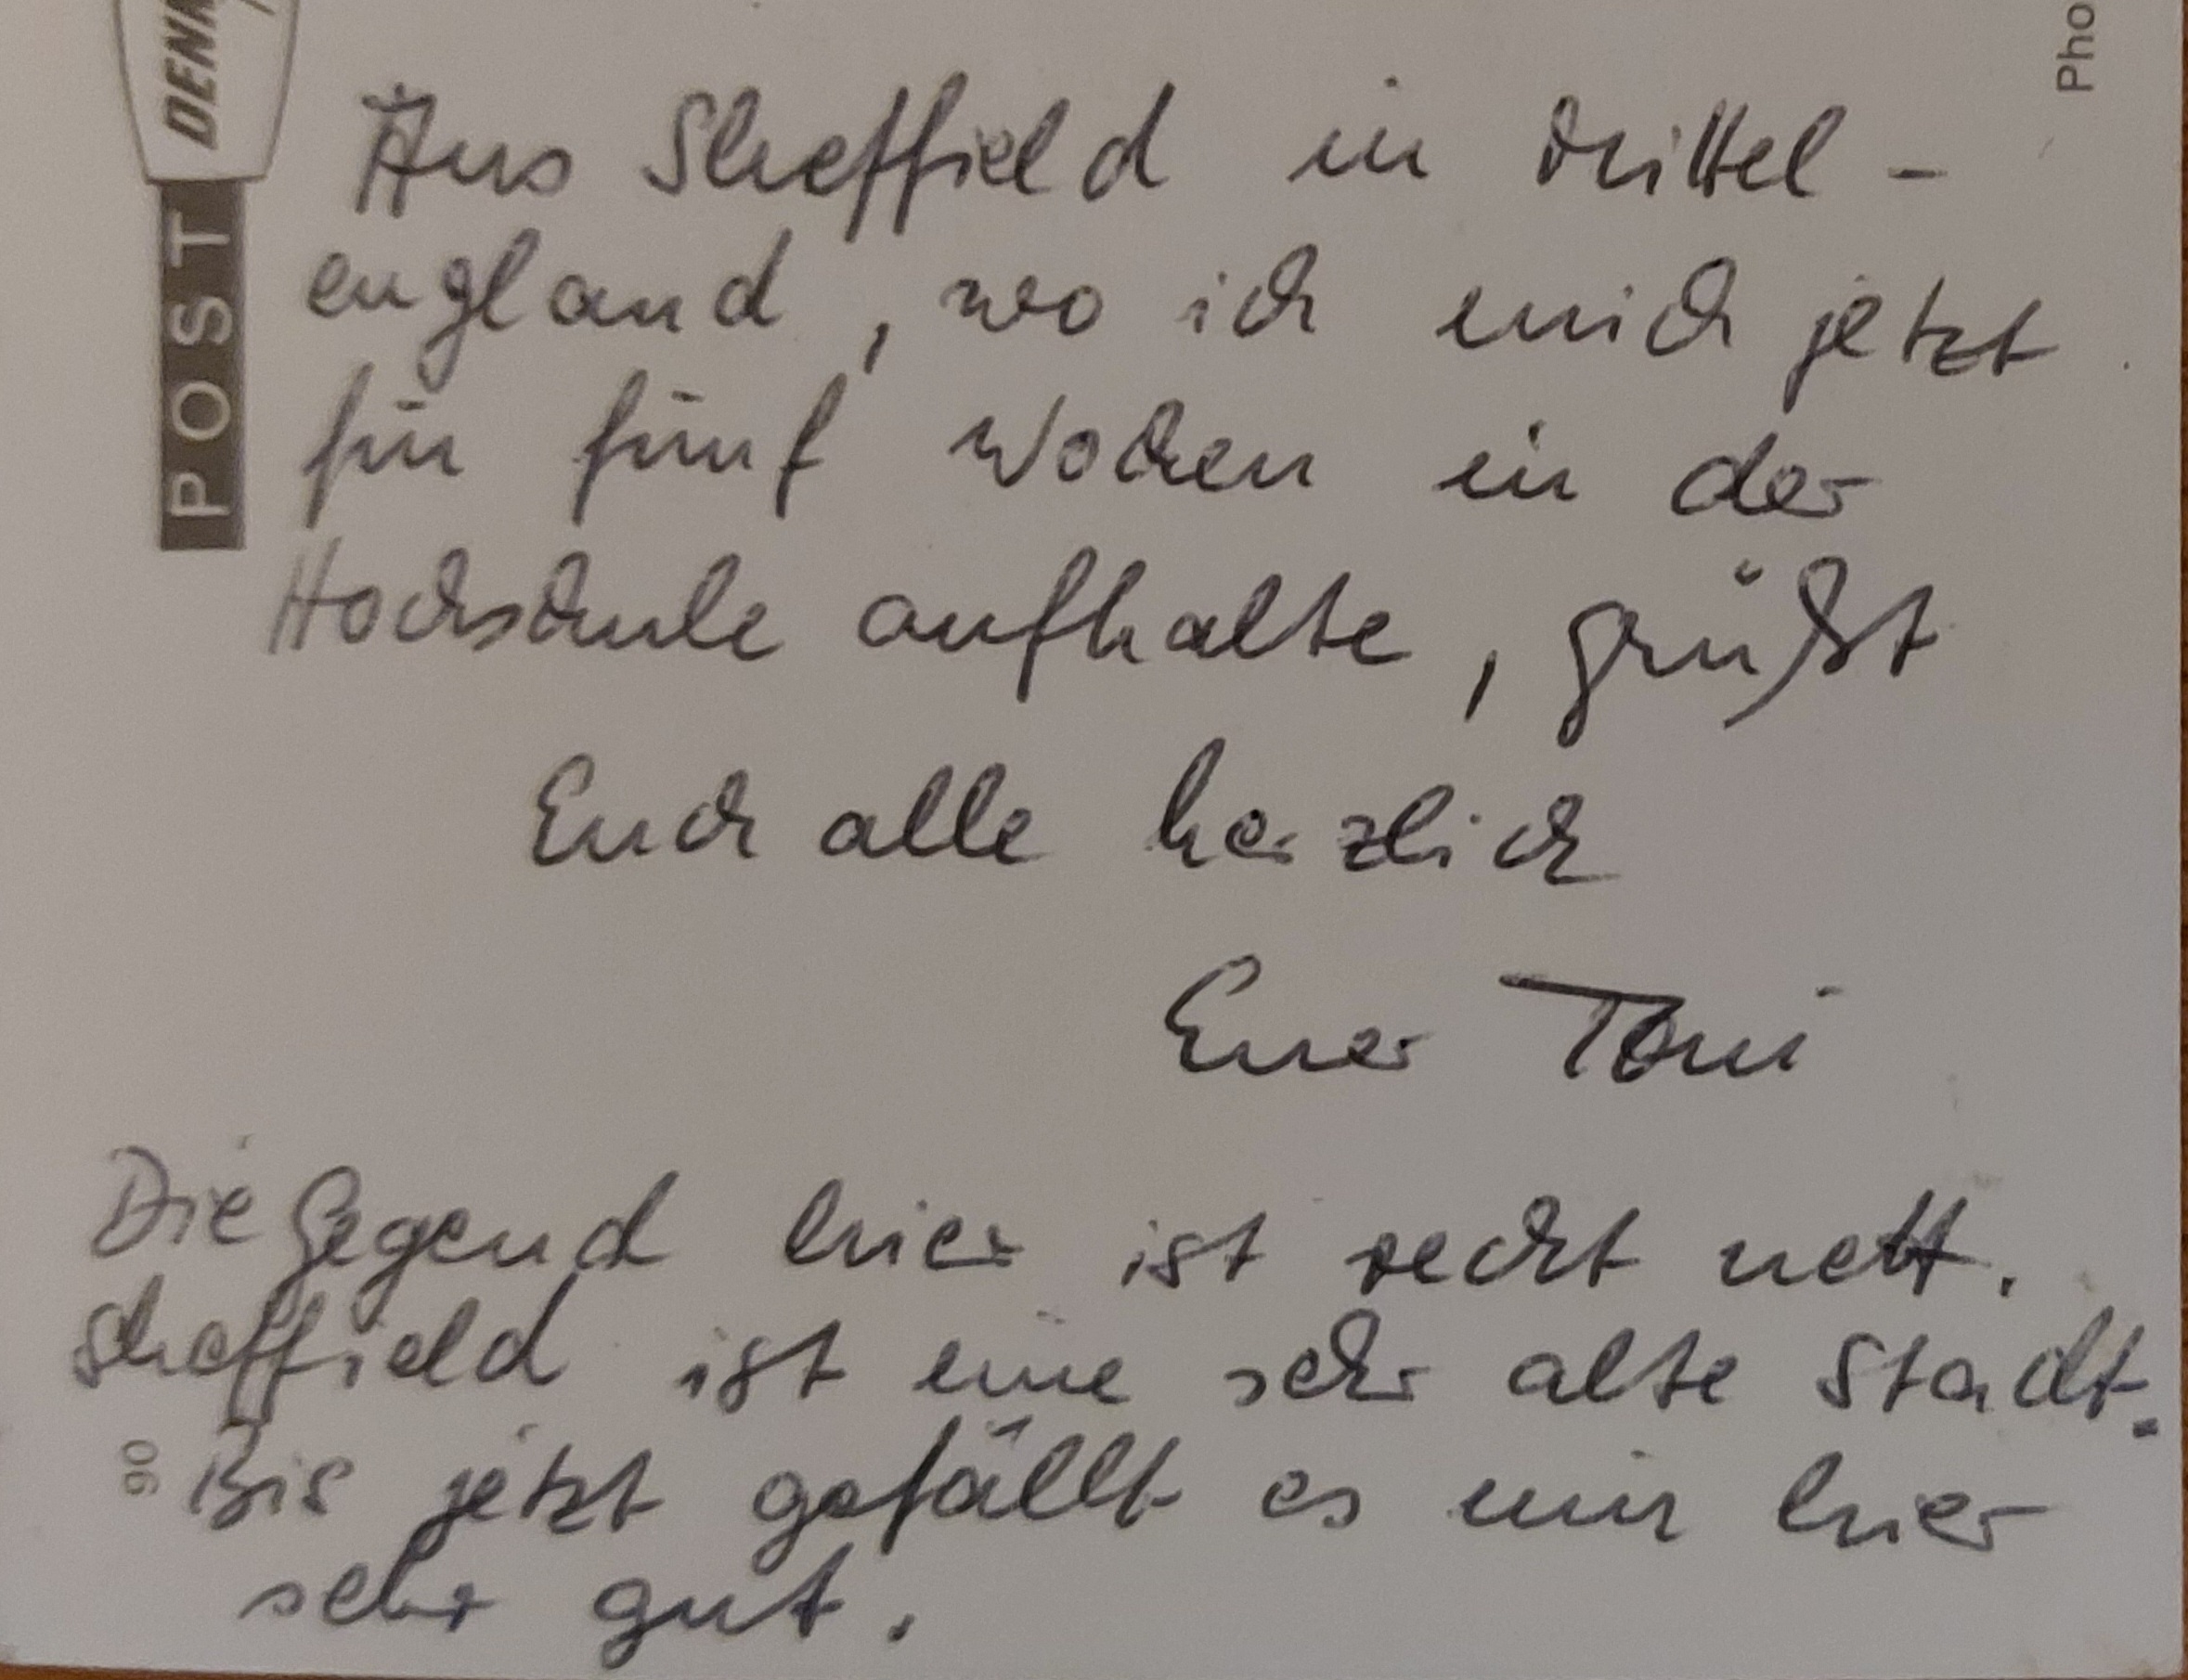 DENN
POST
Pho
Aus Sheffield in Mittel-
england, wo ich mich jetzt
für fünf Wochen in der
Hochschule aufhalte, grüßt
Euch alle herzlich
Euer Toni
Die Gegend hier ist recht nett.
Sheffield ist eine sehr alte Stadt.
90
Bis jetzt gefällt es mir hier
sehr gut.